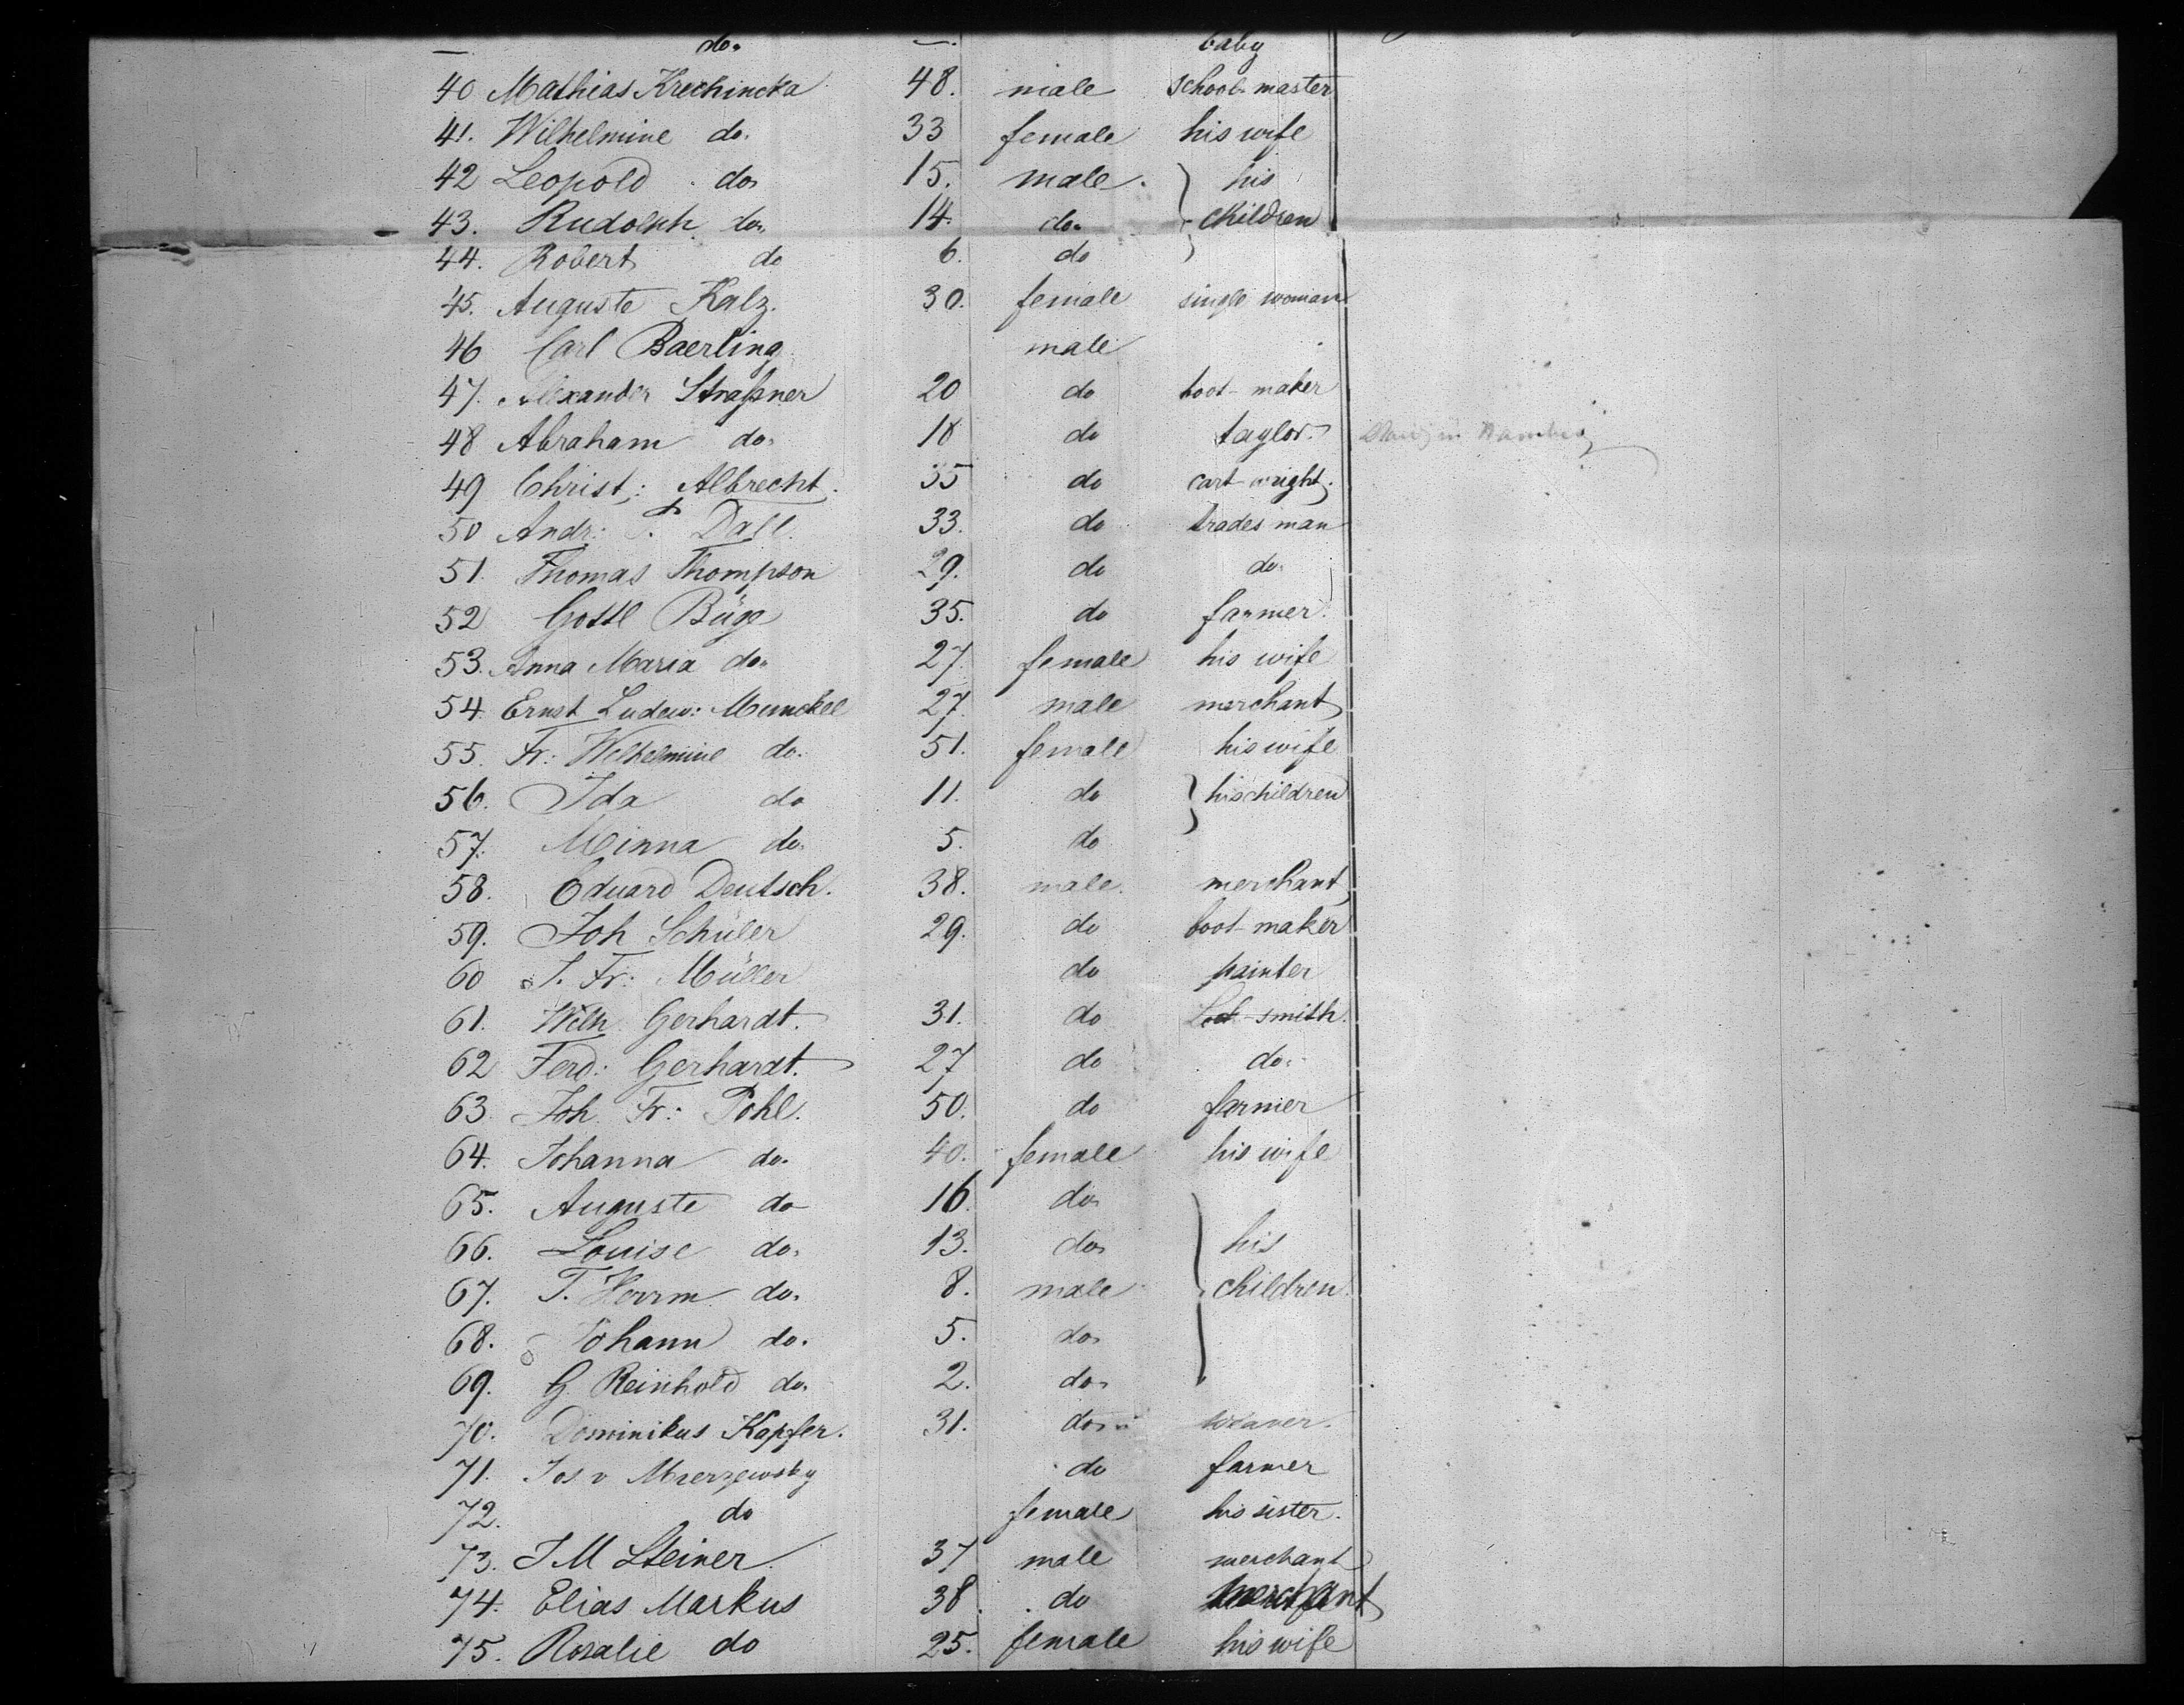 — do. —. baby
40 Mathias Krechincka 48. male school-master
41. Wilhelmine do. 33 female his wife
42 Leopold do. 15. male. his
43. Rudolph do. 14. do. children
44. Robert do 6. do
45. Auguste Kalz. 30. female single woman
46 Carl Baerling male
47. Alexander Straßner 20 do boot-maker
48 Abraham do. 18 do taylor.
49 Christ: Albrecht. 35 do cart-wright.
50 Andr: Dall. 33. do trades man
51. Thomas Thompson 29. do do.
52 Gottl Büge 35. do farmer.
53. Anna Maria do. 27. female his wife
54. Ernst Ludew: Munckel 27. male merchant
55. Fr: Wilhelmine do. 51. female his wife
56. Ida do 11. do his children
57. Minna do. 5. do
58. Eduard Deutsch. 38. male. merchant
59. Joh Schüler 29. do boot-maker
60 J. Fr: Müller do painter
61. Wilh. Gerhardt. 31. do smith.
62 Ferd: Gerhardt. 27 do do.
63. Joh. Fr: Pohl. 50. do farmer
64. Johanna do. 40. female his wife
65. Auguste do 16. do.
66. Louise do. 13. do. his
67. T. Herrm do. 8. male children.
68. Johann do. 5. do.
69. G. Reinhold do. 2. do.
70. Dominikus Kapfer. 31. do. weaver.
71. Jos. v Mierzewsky do farmer
72. do female his sister.
73. J M Steiner 37 male merchant
74. Elias Markus 38. do merchant
75. Rosalie do 25. female his wife